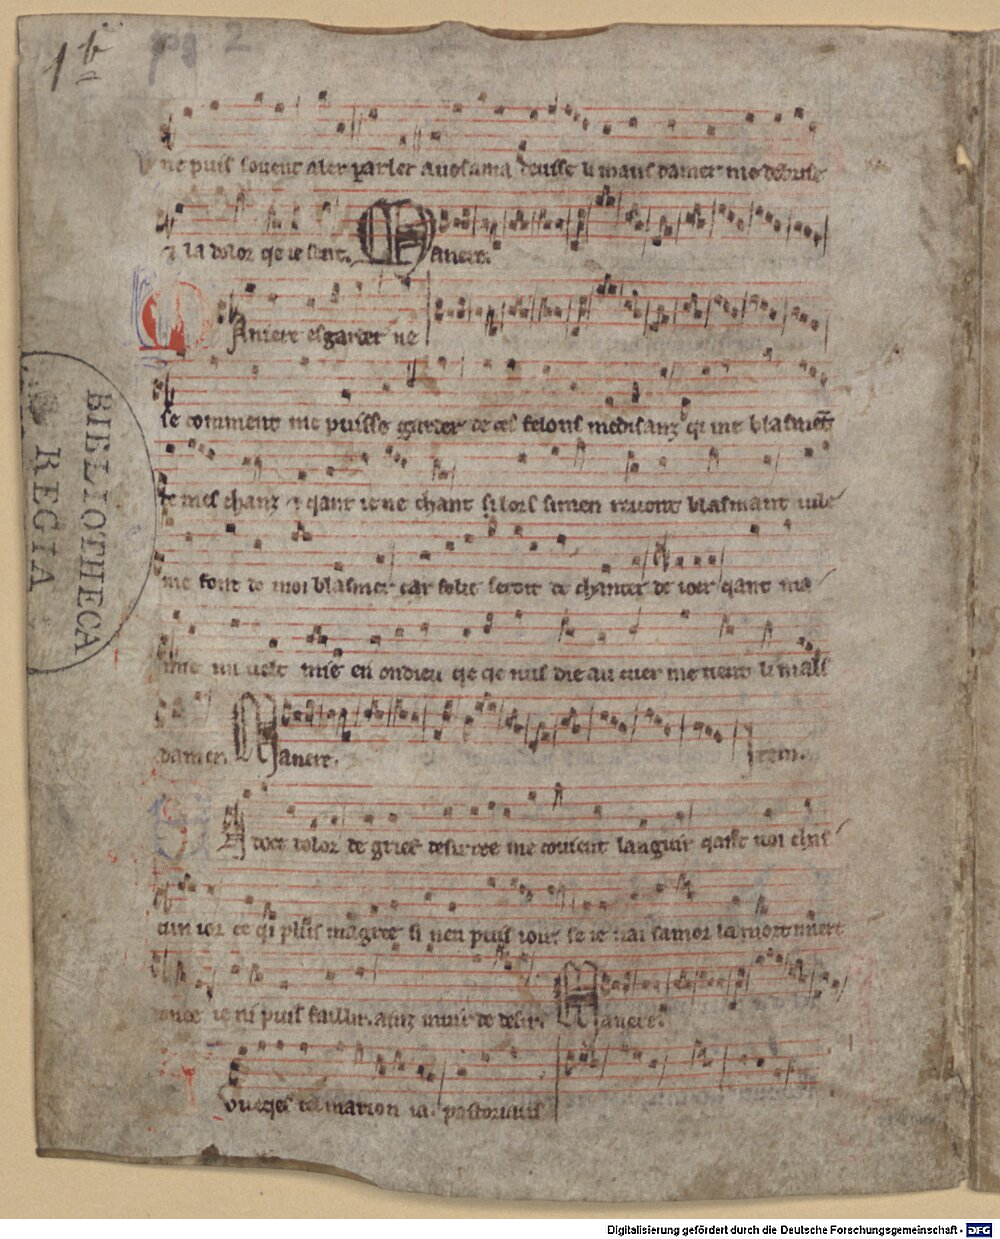 1 b
pg 2
ne puis sovent aler parler avos ama deusse li maus damer me debrise
la dolor qe ie sent. Manere.
Aniere esgarder ne
se comment me puisse garder de ces felons medisanz qi me blasment
de mes chanz ⁊ qant ie ne chant si lors sinien revont blasmant vile
me font de moi blasmer car folie seroit de chanter de ioer qant ma
mie nu velt mie en ondieu qe qe nus die au cuer me tient li mals
damer. Manere. Item.
A doce dolor de griee desirree me covient languir qant voi chas
cun ior ce qi plus magree si nen puis ioir se ie nai samor la mort mert
donee ie ni puis faillir. ainz muir de desir. Manere.
Oueqes tel marion va pastoriaus
BIBLIOTHECA
REGIA
Digitalisierung gefördert durch die Deutsche Forschungsgemeinschaft - DFG